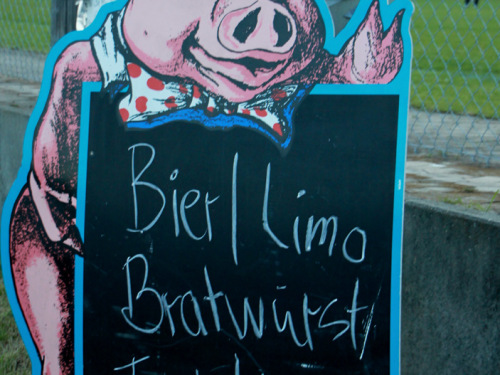 Bier/Limo
Bratwürst/